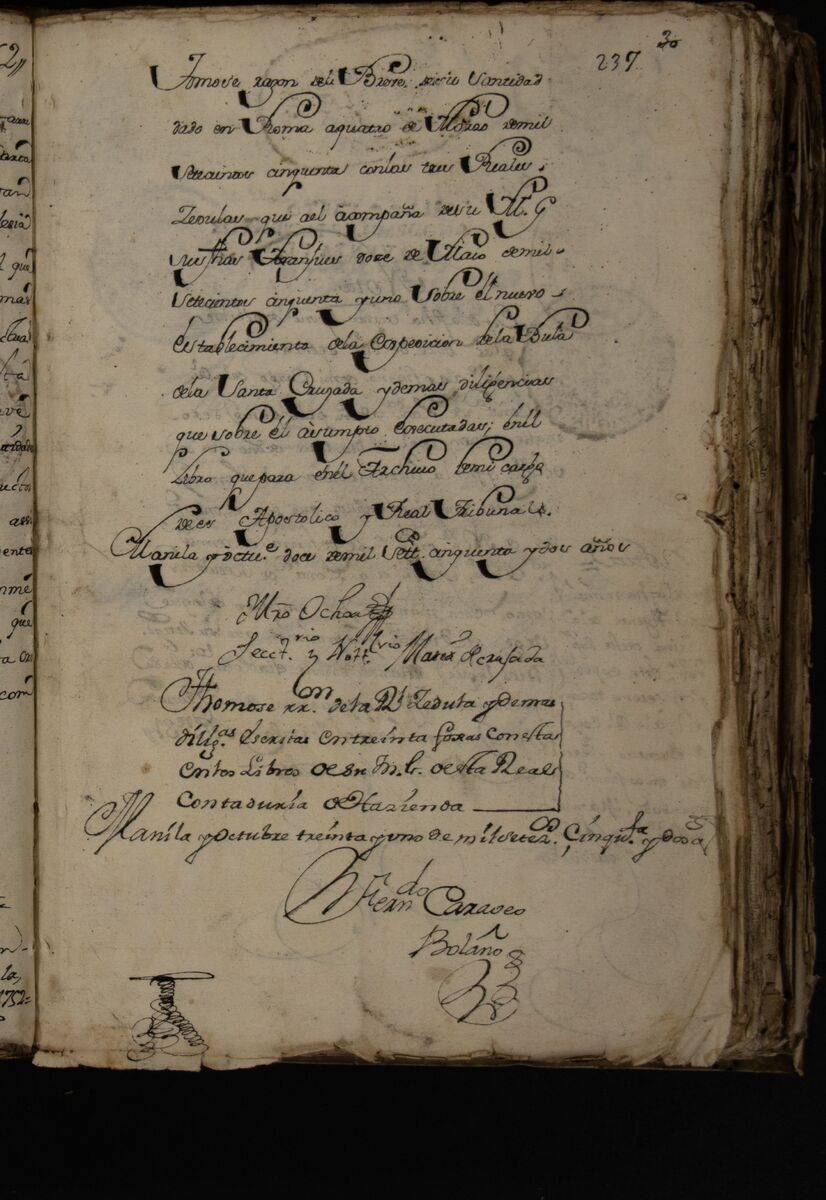 237 30
Tomose razon del Breve de su Santidad
dado en Roma a quatro de Marzo de mil
setecientos cinquenta con las tres Reales
Zedulas que a el acompaña de su M. G
sus fhas Aranjues doze de Maio de mil
setecientos cinquenta y uno sobre el nuevo
establecimiento de la Expedicion de la Bula
de la Santa Cruzada y demas diligencias
que sobre el asumpto executadas; en el
Libro que para en el Archivo de mi cargo
de es Apostolico y Real Tribunal.
Manila y Octu.e doce de mil Sett.s cinquenta y dos años
Mro Ochoa
Secct.rio y Nott.rio Maior de crusada
Thomose rr.on de la Rl Zedula y demas
dilig.as escritas en treinta foxas con esta
en los Libros de su M. de esta Real
Contaduria de Hazienda
Manila y Octubre treinta y uno de mil setez.os Cinqu.ta y dos a.s
Fern.do Caraveo
Bolaño